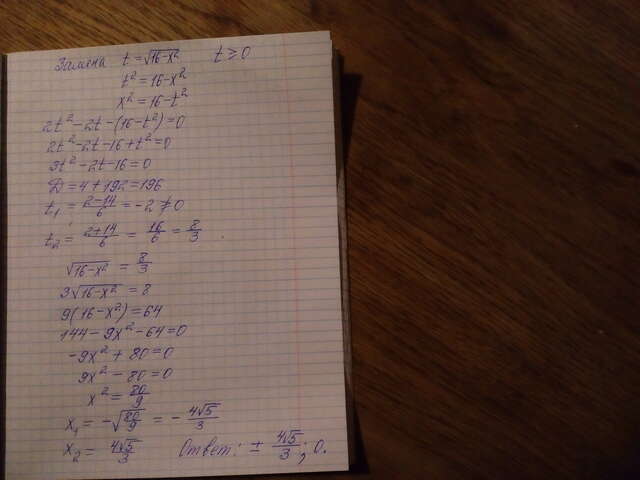 Замена t = √16-x² t ≥ 0
t² = 16-x²
x² = 16-t²
2t² - 2t - (16-t²) = 0
2t² - 2t - 16 + t² = 0
3t² - 2t - 16 = 0
D = 4 + 192 = 196
t₁ = 2-14/6 = -2 ≱ 0
t₂ = 2+14/6 = 16/6 = 8/3
√16-x² = 8/3
3√16-x² = 8
9(16-x²) = 64
144 - 9x² - 64 = 0
-9x² + 80 = 0
9x² - 80 = 0
x² = 80/9
x₁ = -√80/9 = - 4√5/3
x₂ = 4√5/3 Ответ: ± 4√5/3; 0.